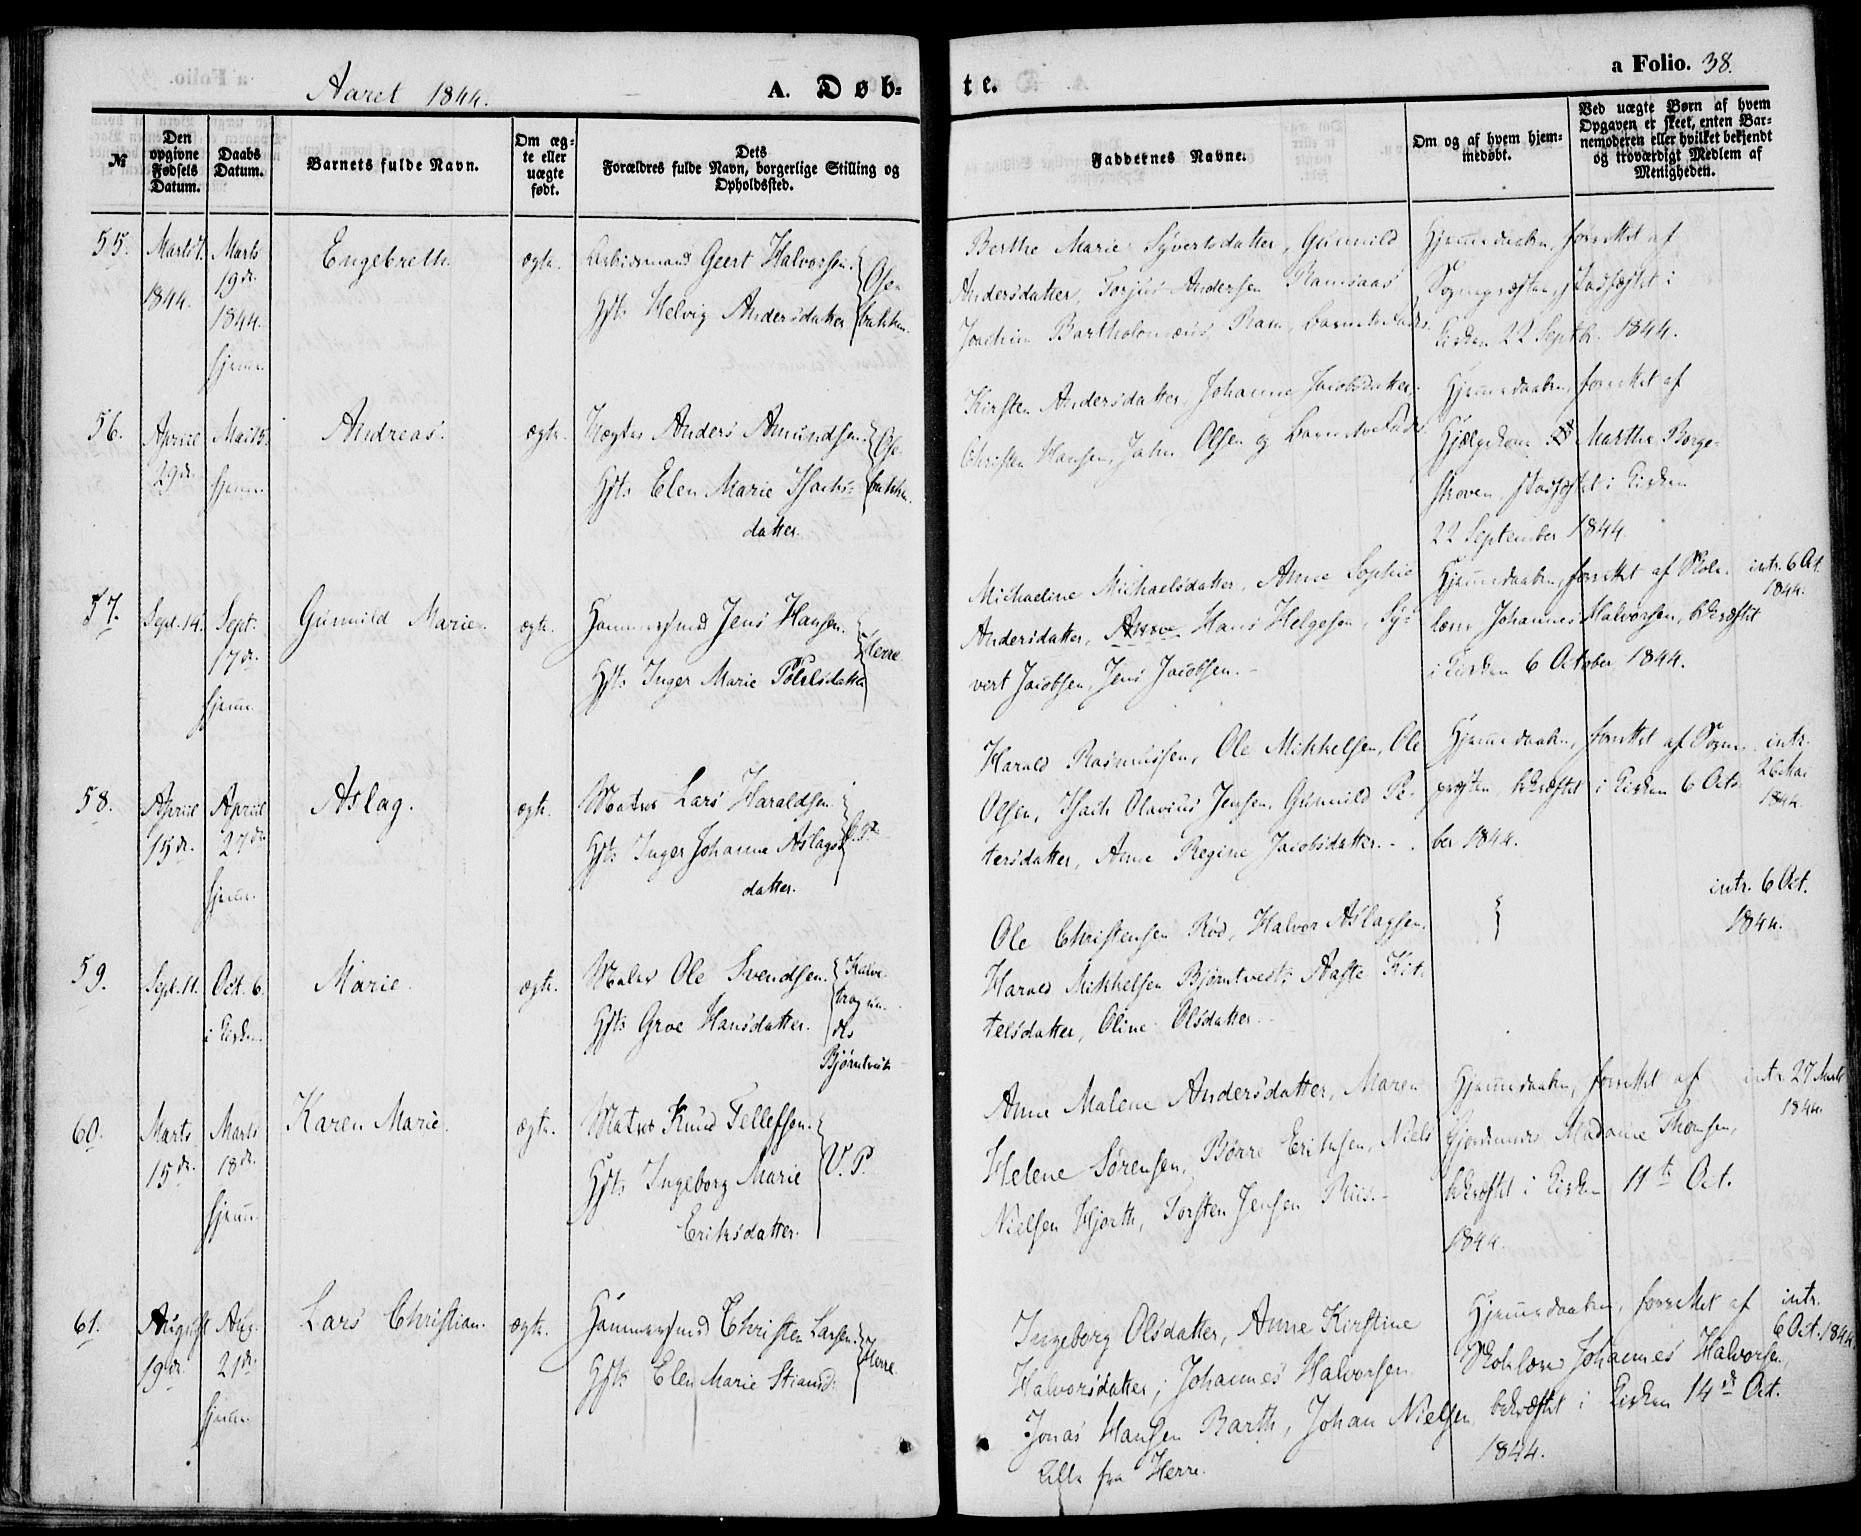 Aaret 1844.
A. Døb-
te.
a Folio. 38.
№
Den opgivne Fødsels Datum.
Daabs Datum.
Barnets fulde Navn.
Om ægte eller uægte født.
Dets Forældres fulde Navn, borgerlige Stilling og Opholdssted.
Faddernes Navne.
Om og af hvem hjemmedøbt.
Ved uægte Børn af hvem Opgaven er skeet, enten Barnemoderen eller hvilket bekjendt og troværdigt Medlem af Menigheden.
55.
1844.
Marts
19de
1844.
hjemme
Engebreth.
ægte.
Arbeidsmand Geert Halvorsen.
Hst: Helvig Andersdatter
Ose-
bakken.
Berthe Marie Syvertsdatter, Gunnild
Andersdatter, Torjus Andersen Ramsaas
Joachim Bartholomæus Ram, barnets Fader.
Hjemmedaaben, forrettet af
Sognepræsten, stadfæstet i
Kirken 22 Septbr. 1844.
56.
April
29de
Mai 15.
hjemme
Andreas.
ægte.
Vægter Anders Amundsen.
Hst: Elen Marie Isachs-
datter.
Ose-
bakken.
Kirsten Andersdatter, Johanne Jacobsdatter,
Christen Hansen, John Olsen og Barnets Fader.
Hjemmedaaben, forrettet af
Hjælpekone Marthe Borge-
skoven, stadfæstet i Kirken
22 September 1844.
57.
Sept. 14.
Sept.
17de
hjemme
Gunnild Marie.
ægte.
Hammersmed Jens Hansen.
Hst: Inger Marie Povelsdatter
Herre
Michaeline Michaelsdatter, Anne Sophie
Andersdatter, Hans Helgesen, Sy-
vert Jacobsen, Jens Jacobsen.
Hjemmedaaben, forrettet af Skole-
lærer Johannes Halvorsen, bekræftet
i Kirken 6 October 1844.
intr. 6 Oct.
1844.
58.
April
15de
April
27de
hjemme
Aslag.
ægte.
Matros Lars Haraldsen
Hst: Inger Johanne Aslags-
datter.
V. P.
Harald Rasmussen, Ole Mikkelsen, Ole
Olsen, Isach Olavius Jensen, Gunnild Pe-
tersdatter, Anne Regine Jacobsdatter.
Hjemmedaaben, forrettet af Sogne-
præsten bekræftet i Kirken 6 Octo-
ber 1844.
intr.
26 Mai
1844.
59.
Sept. 11.
Oct. 6.
i Kirken.
Marie.
ægte.
Maler Ole Svendsen.
Hst: Groe Hansdatter.
Bjørntvedt
Ole Christensen Rød, Halvor Aslagsen,
Harald Mikkelsen Bjørntvedt, Aaste Kit-
telsdatter, Oline Olsdatter.
intr. 6 Oct.
1844.
60.
Marts
15de
Marts
18de
hjemme
Karen Marie.
ægte.
Matros Knud Tellefsen.
Hst: Ingeborg Marie
Eriksdatter.
V. P.
Anne Malene Andersdatter, Maren
Helene Sørensen, Børre Eriksen, Niels
Nielsen Hjorth, Torsten Jensen Riis.
Hjemmedaaben, forrettet af
Gjordemoder Madame Thomsen,
bekræftet i Kirken 11te Oct.
1844.
intr. 27 Marts
1844
61.
August
19de
Aug.
21de
hjemme
Lars Christian.
ægte.
Hammersmed Christen Larsen.
Hst: Elen Marie
Herre.
Ingeborg Olsdatter, Anne Kirstine
Halvorsdatter, Johannes Halvorsen
Jonas Hansen Barth, Johan Nielsen
alle fra Herre.
Hjemmedaaben, forrettet af
Skolelærer Johannes Halvorsen,
bekræftet i Kirken 14de Oct.
1844.
intr.
6 Oct. 1844